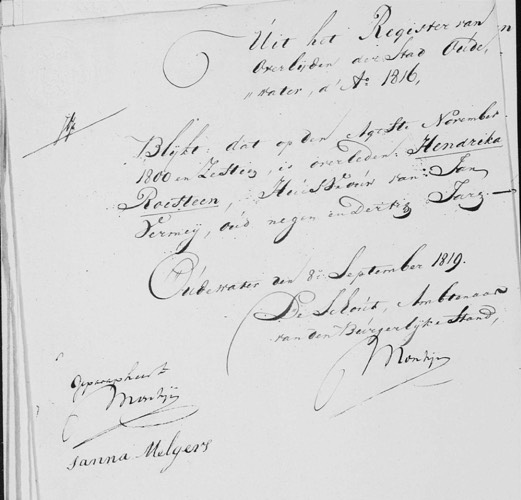 Uit het Register van
Overlijden der Stad Oude„
„water, d' Ao. 1816,
Blijkt: dat op den Agtste November
1800 en Zestien, is overleden: Hendrika
Roesteen, Huisvrouw van: Jan
Vermeij, oud negen en dertig Jare —
Oudewater den 8e September 1819.
De Schout, Ambtenaar
van den Burgerlijke Stand,
Montijn
Geparapheert
Montijn
Janna Melgers